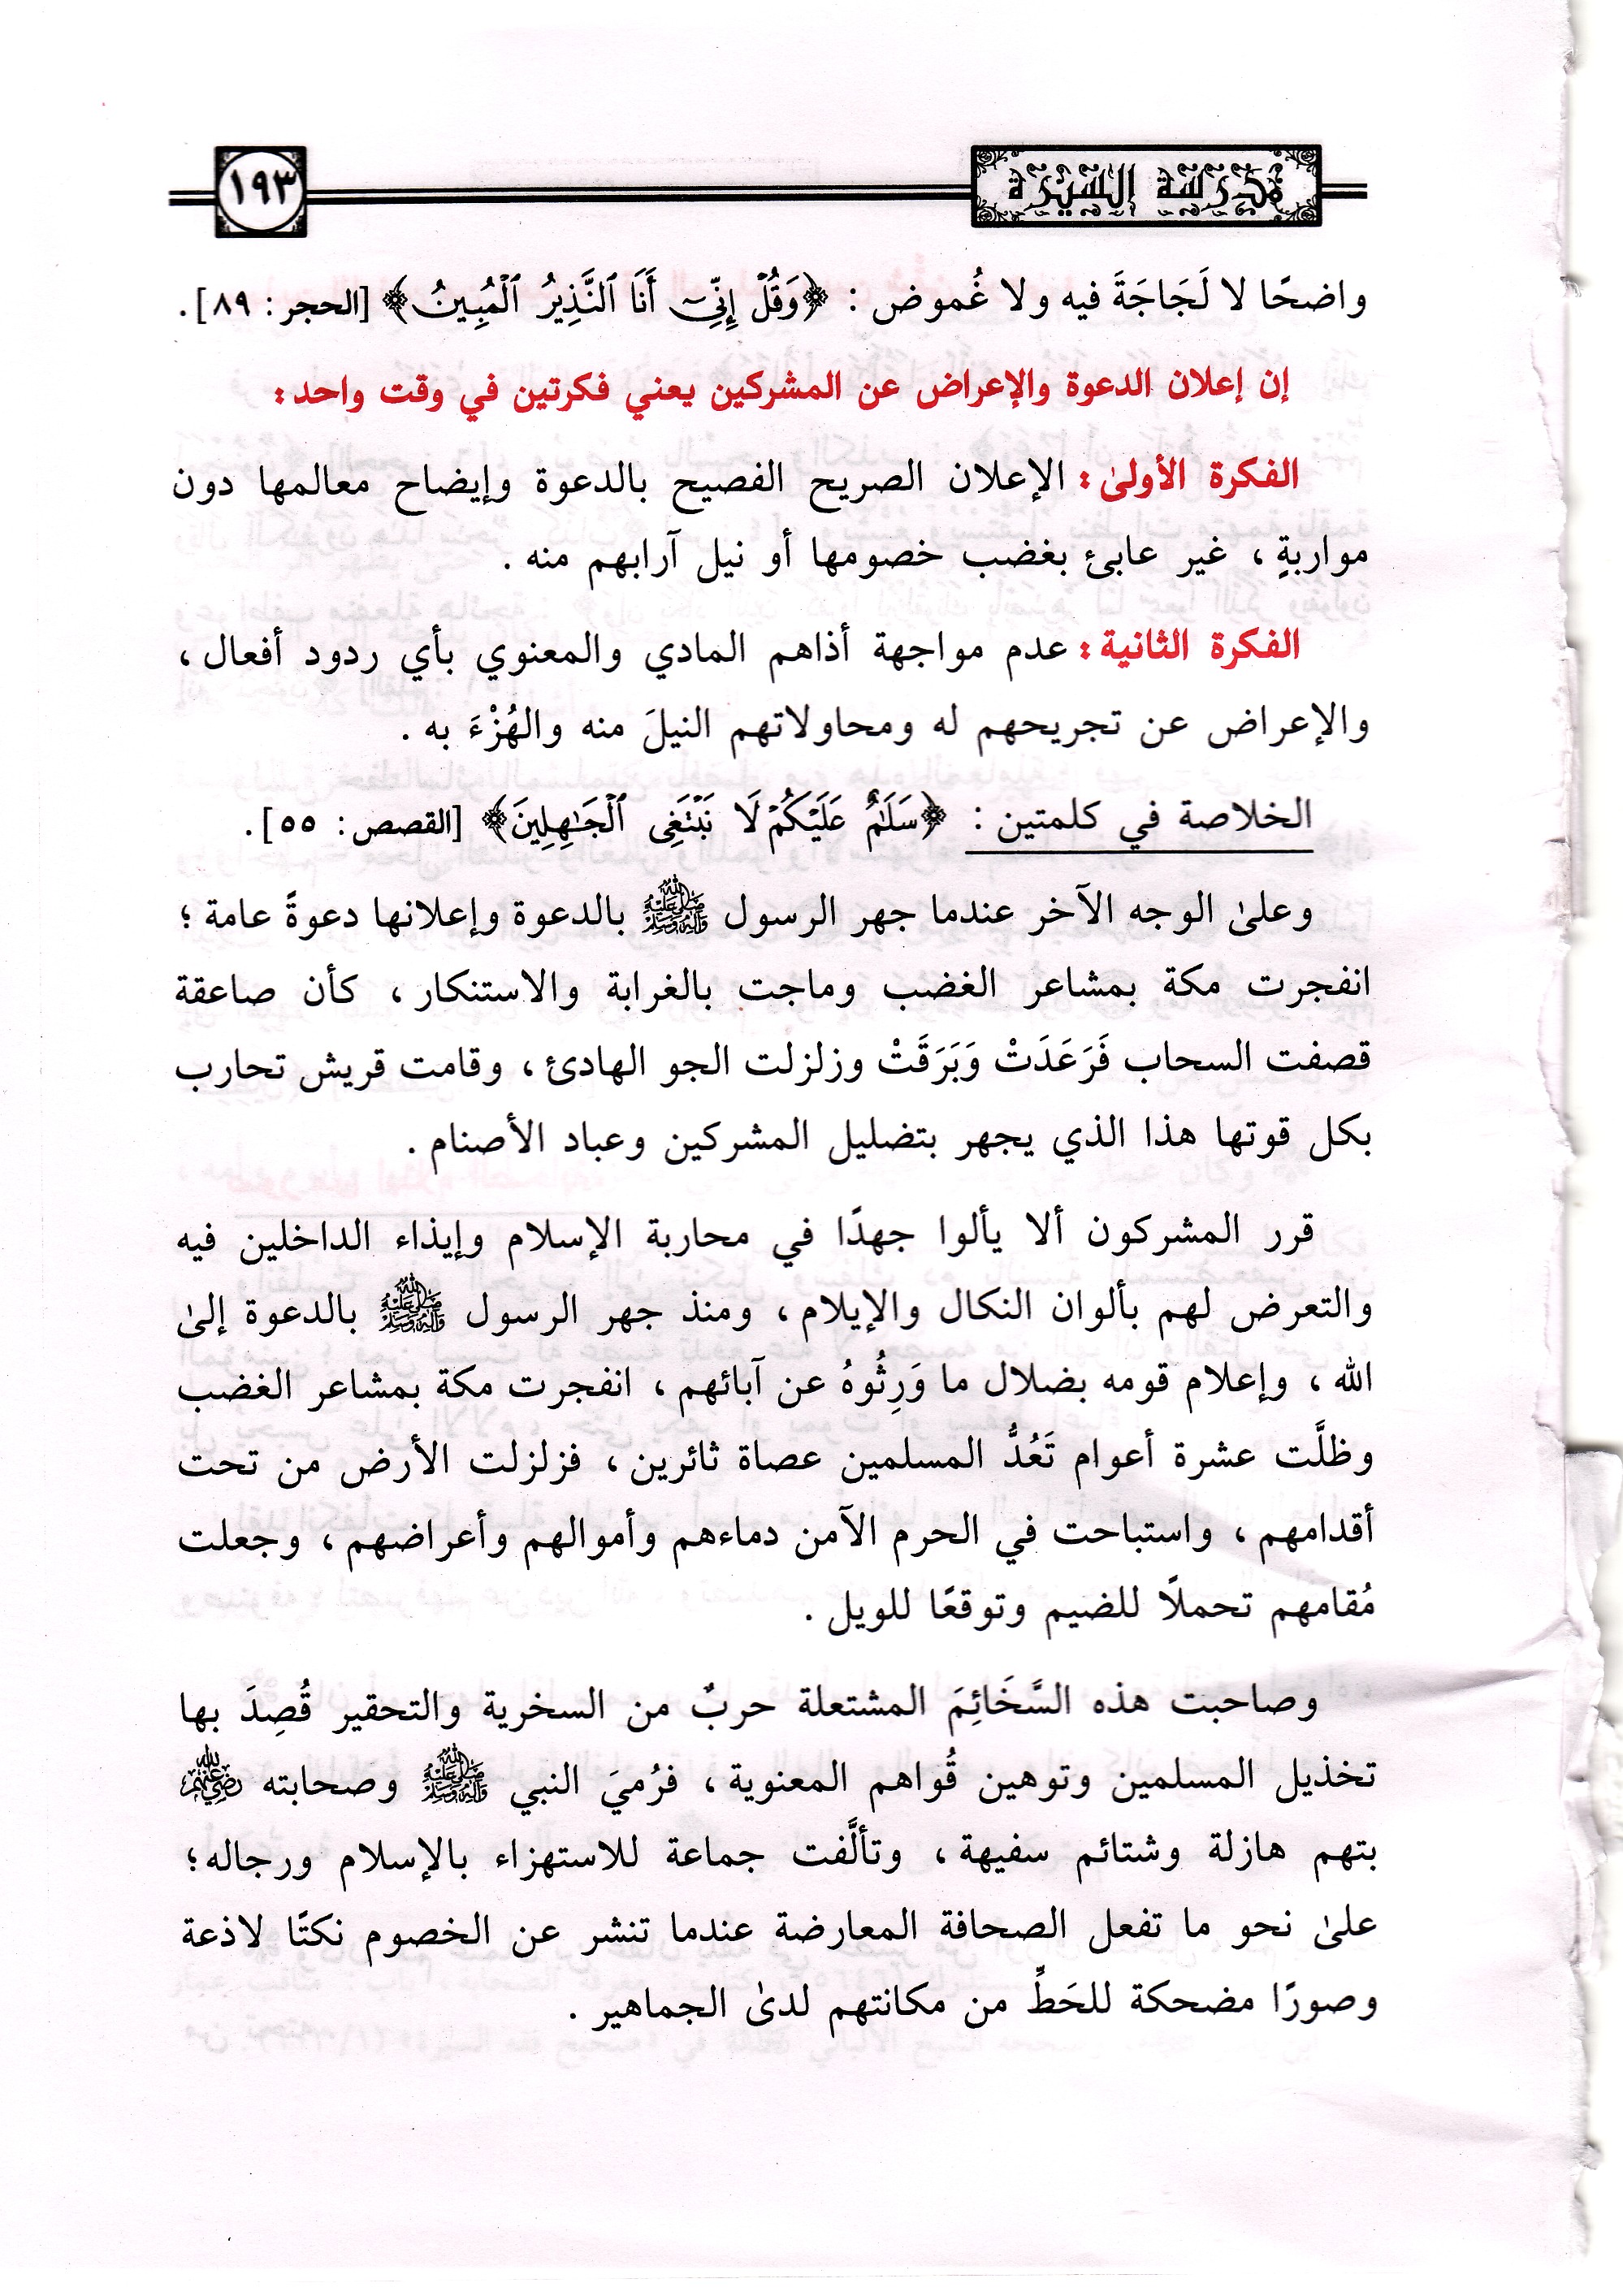 مدرسة السيرة
١٩٣
واضحًا لا لَجَاجَةَ فيه ولا غُموض : ﴿وَقُلْ إِنِّيٓ أَنَا ٱلنَّذِيرُ ٱلْمُبِينُ﴾ [الحجر: ٨٩].
إن إعلان الدعوة والإعراض عن المشركين يعني فكرتين في وقت واحد:
الفكرة الأولىٰ: الإعلان الصريح الفصيح بالدعوة وإيضاح معالمها دون
مواربةٍ ، غير عابئ بغضب خصومها أو نيل آرابهم منه .
الفكرة الثانية: عدم مواجهة أذاهم المادي والمعنوي بأي ردود أفعال ،
والإعراض عن تجريحهم له ومحاولاتهم النيلَ منه والهُزْءَ به .
الخلاصة في كلمتين : ﴿سَلَٰمٌ عَلَيْكُمْ لَا نَبْتَغِى ٱلْجَٰهِلِينَ﴾ [القصص: ٥٥].
وعلىٰ الوجه الآخر عندما جهر الرسول ﷺ بالدعوة وإعلانها دعوةً عامة ؛
انفجرت مكة بمشاعر الغضب وماجت بالغرابة والاستنكار ، كأن صاعقة
قصفت السحاب فَرَعَدَتْ وَبَرَقَتْ وزلزلت الجو الهادئ ، وقامت قريش تحارب
بكل قوتها هذا الذي يجهر بتضليل المشركين وعباد الأصنام .
قرر المشركون ألا يألوا جهدًا في محاربة الإسلام وإيذاء الداخلين فيه
والتعرض لهم بألوان النكال والإيلام ، ومنذ جهر الرسول ﷺ بالدعوة إلىٰ
الله ، وإعلام قومه بضلال ما وَرِثُوهُ عن آبائهم ، انفجرت مكة بمشاعر الغضب
وظلَّت عشرة أعوام تَعُدُّ المسلمين عصاة ثائرين ، فزلزلت الأرض من تحت
أقدامهم ، واستباحت في الحرم الآمن دماءهم وأموالهم وأعراضهم ، وجعلت
مُقامهم تحملًا للضيم وتوقعًا للويل .
وصاحبت هذه السَّخَائِمَ المشتعلة حربٌ من السخرية والتحقير قُصِدَ بها
تخذيل المسلمين وتوهين قُواهم المعنوية ، فرُميَ النبي ﷺ وصحابته رضي الله عنهم
بتهم هازلة وشتائم سفيهة ، وتألَّفت جماعة للاستهزاء بالإسلام ورجاله؛
علىٰ نحو ما تفعل الصحافة المعارضة عندما تنشر عن الخصوم نكتًا لاذعة
وصورًا مضحكة للحَطِّ من مكانتهم لدىٰ الجماهير .